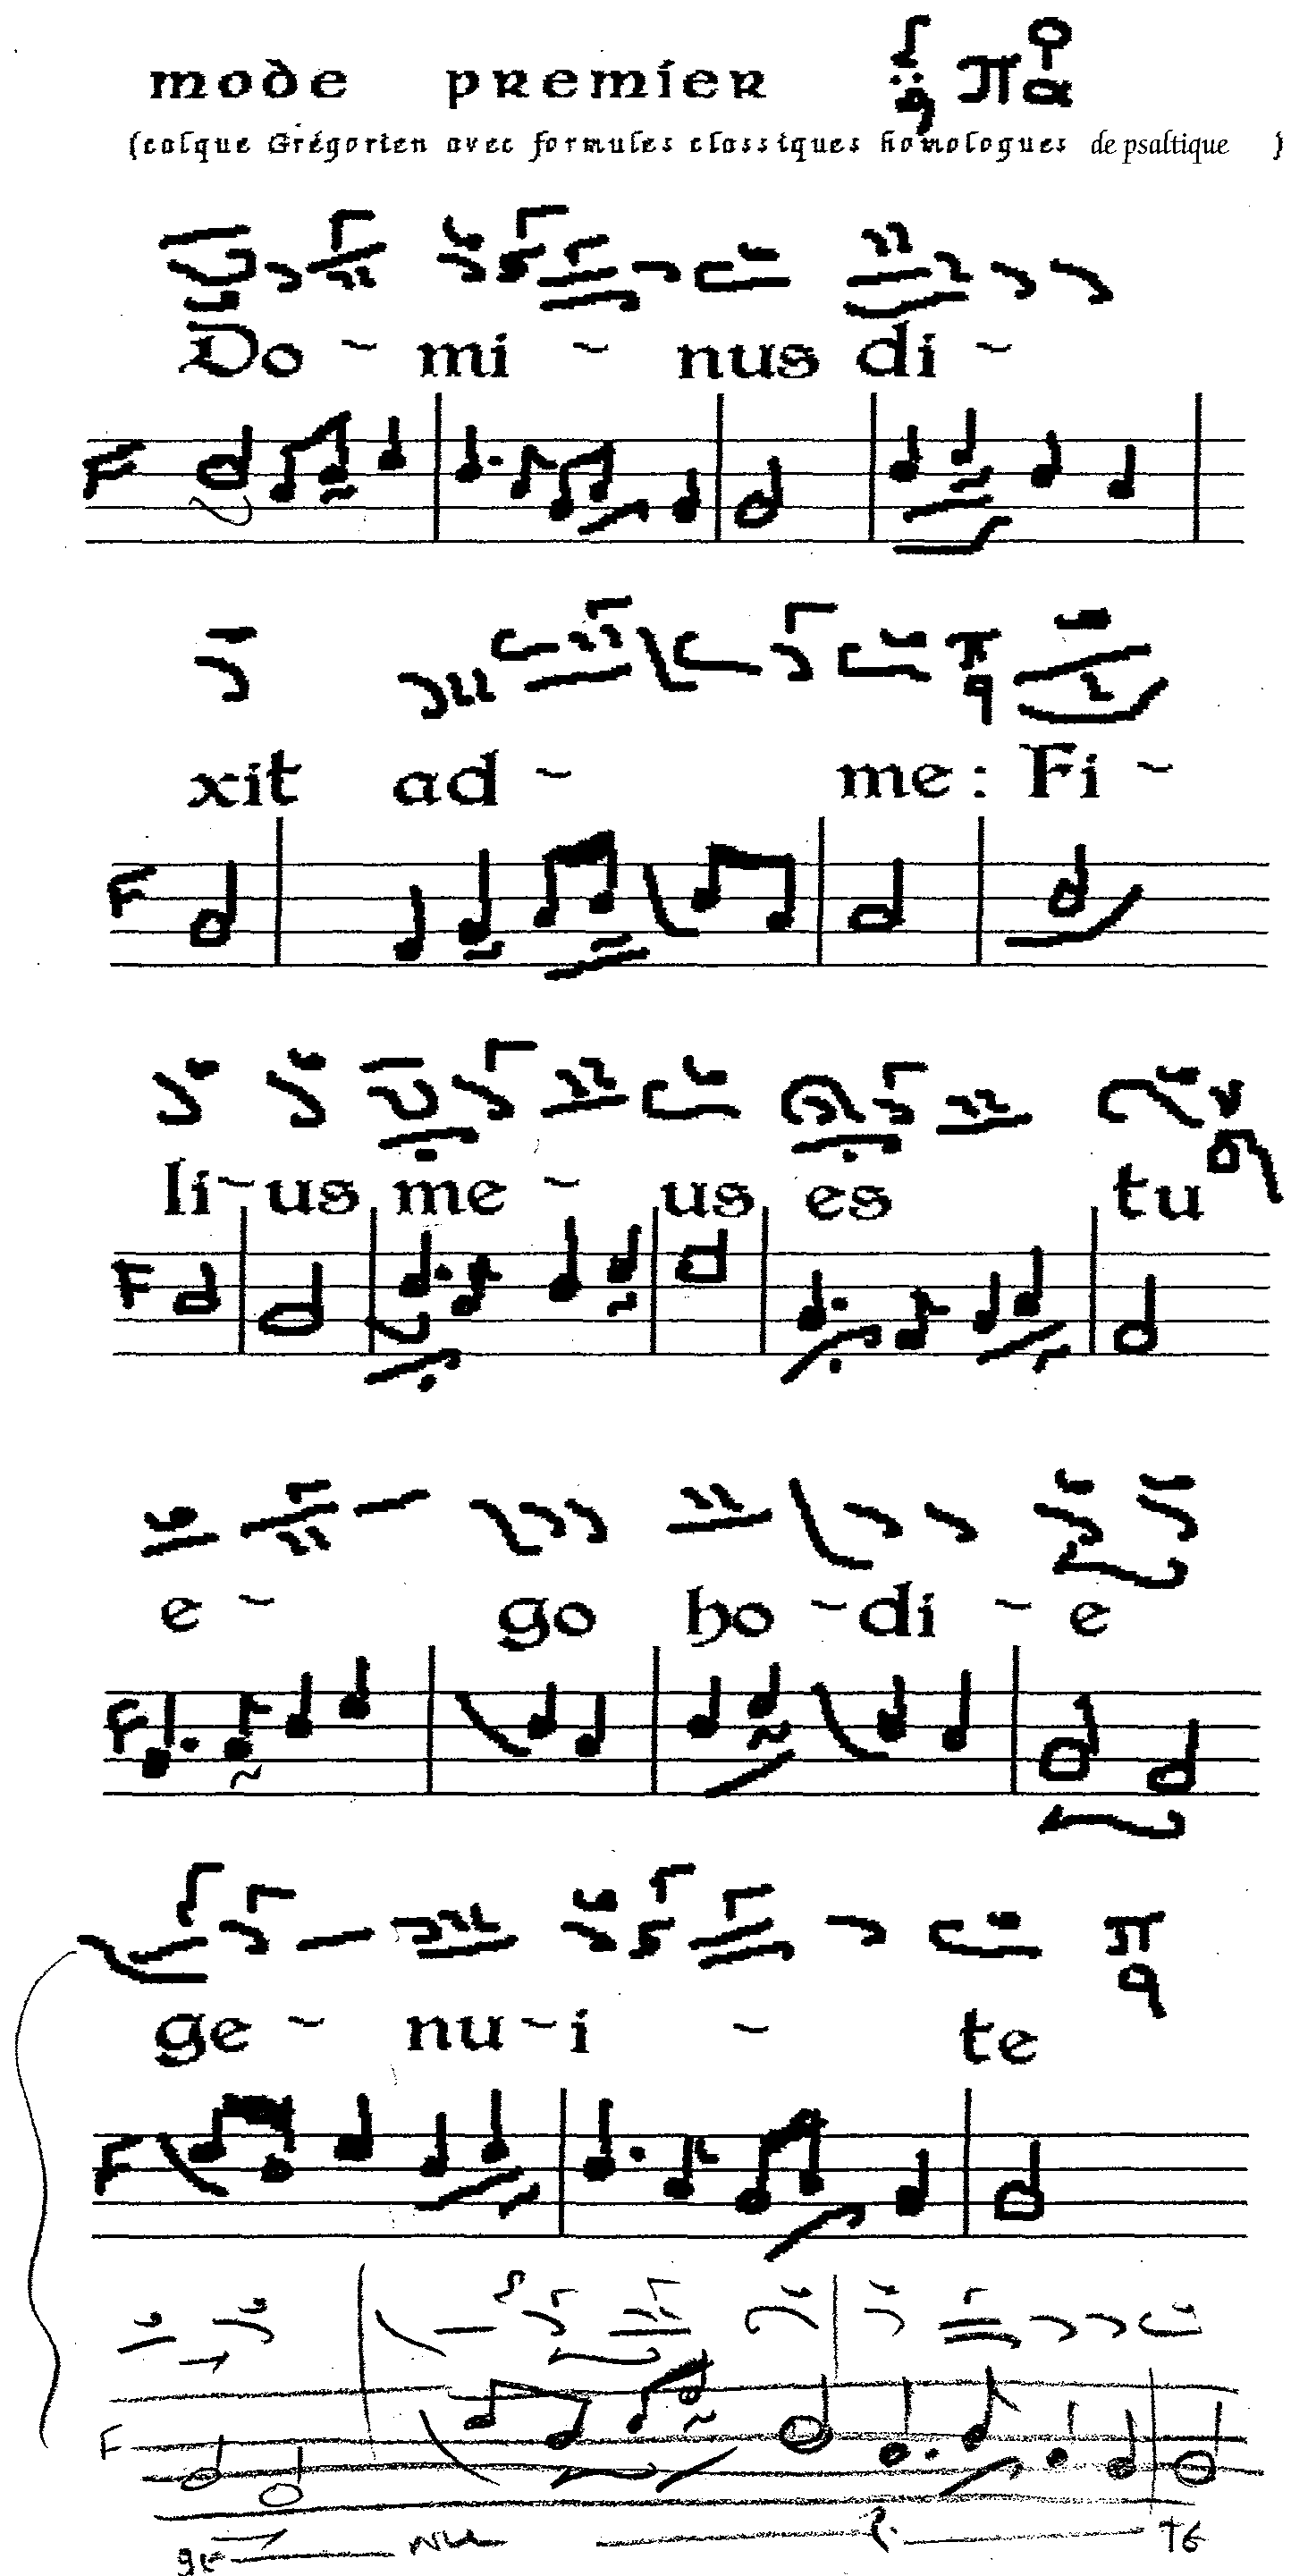 mode premier πα
(calque Grégorien avec formules classiques homologues de psaltique )
Do ~ mi ~ nus di ~
F
xit ad ~ me : Fi ~
F
li ~ us me ~ us es tu
F
e ~ go ho ~ di ~ e
F
ge ~ nu ~ i ~ te
F
F
ge nu i te